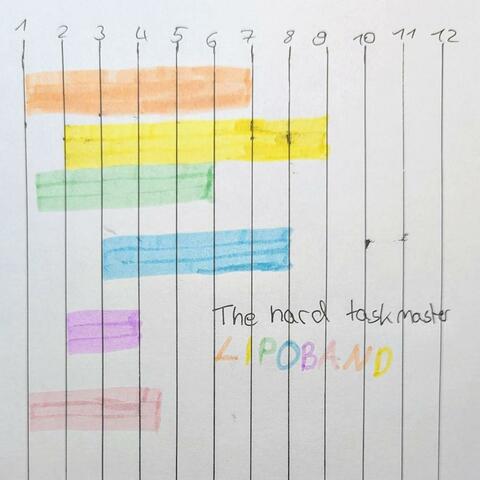 1 2 3 4 5 6 7 8 9 10 11 12
The hard taskmaster
LIPOBAND